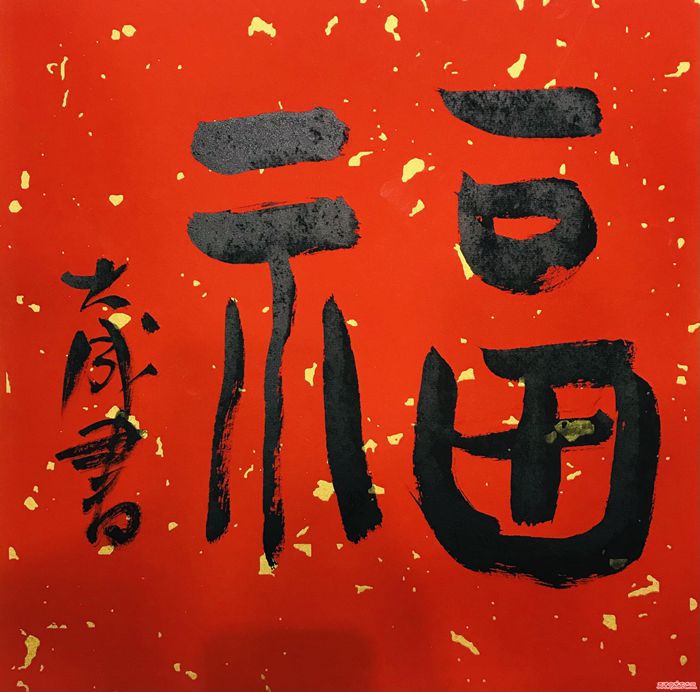 福
大成書